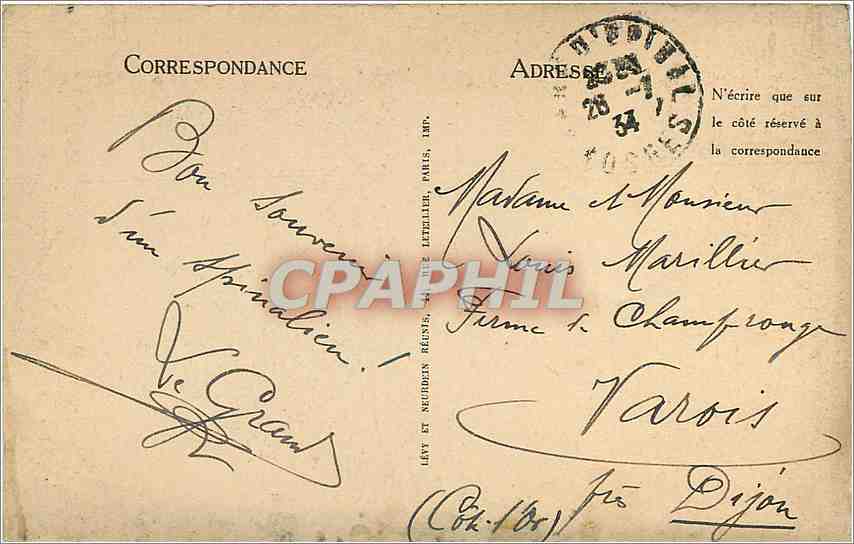 CORRESPONDANCE
Bon souvenir
d'un spinalien!
Le Grand
LÉVY ET NEURDEIN RÉUNIS, 44, RUE LETELLIER, PARIS, IMP.
ADRESSE
D'EPINAL
26 -7
34
VOSGES
N'écrire que sur
le côté réservé à
la correspondance
Madame et Monsieur
Louis Marillier
Ferme de Champrouge
Varois
près Dijon
(Côte-d'Or)
CPAPHIL